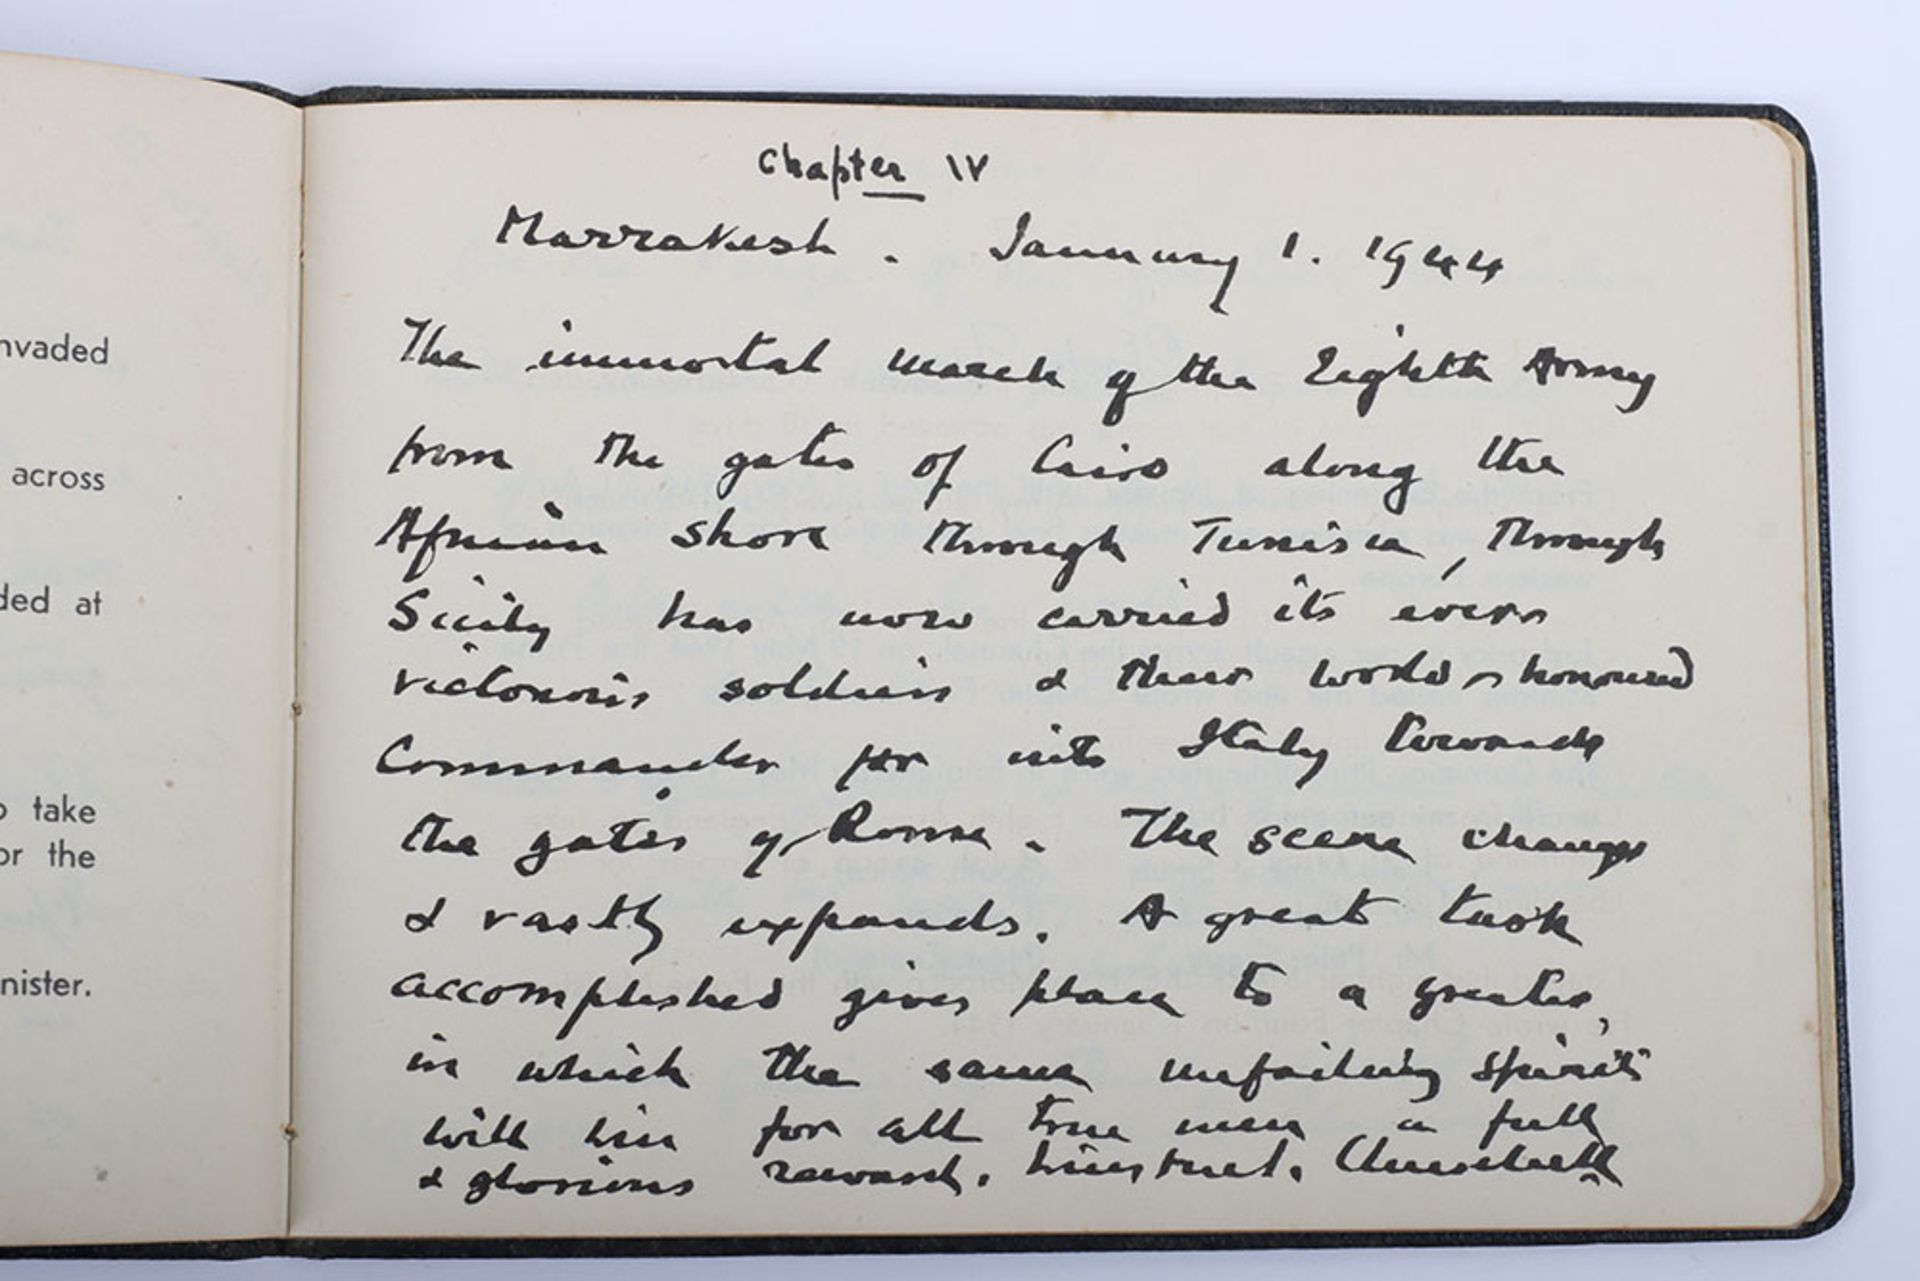 nvaded
across
ded at
o take
or the
nister.
Chapter IV
Marrakesh. January 1. 1944
The immortal march of the Eighth Army
from the gates of Cairo along the
African shore through Tunisia, through
Sicily has now carried its ever
victorious soldiers & their world-honoured
Commander far into Italy towards
the gates of Rome. The scene changes
& vastly expands. A great task
accomplished gives place to a greater,
in which the same unfailing spirit
will win for all true men a full
& glorious reward. Winston S. Churchill